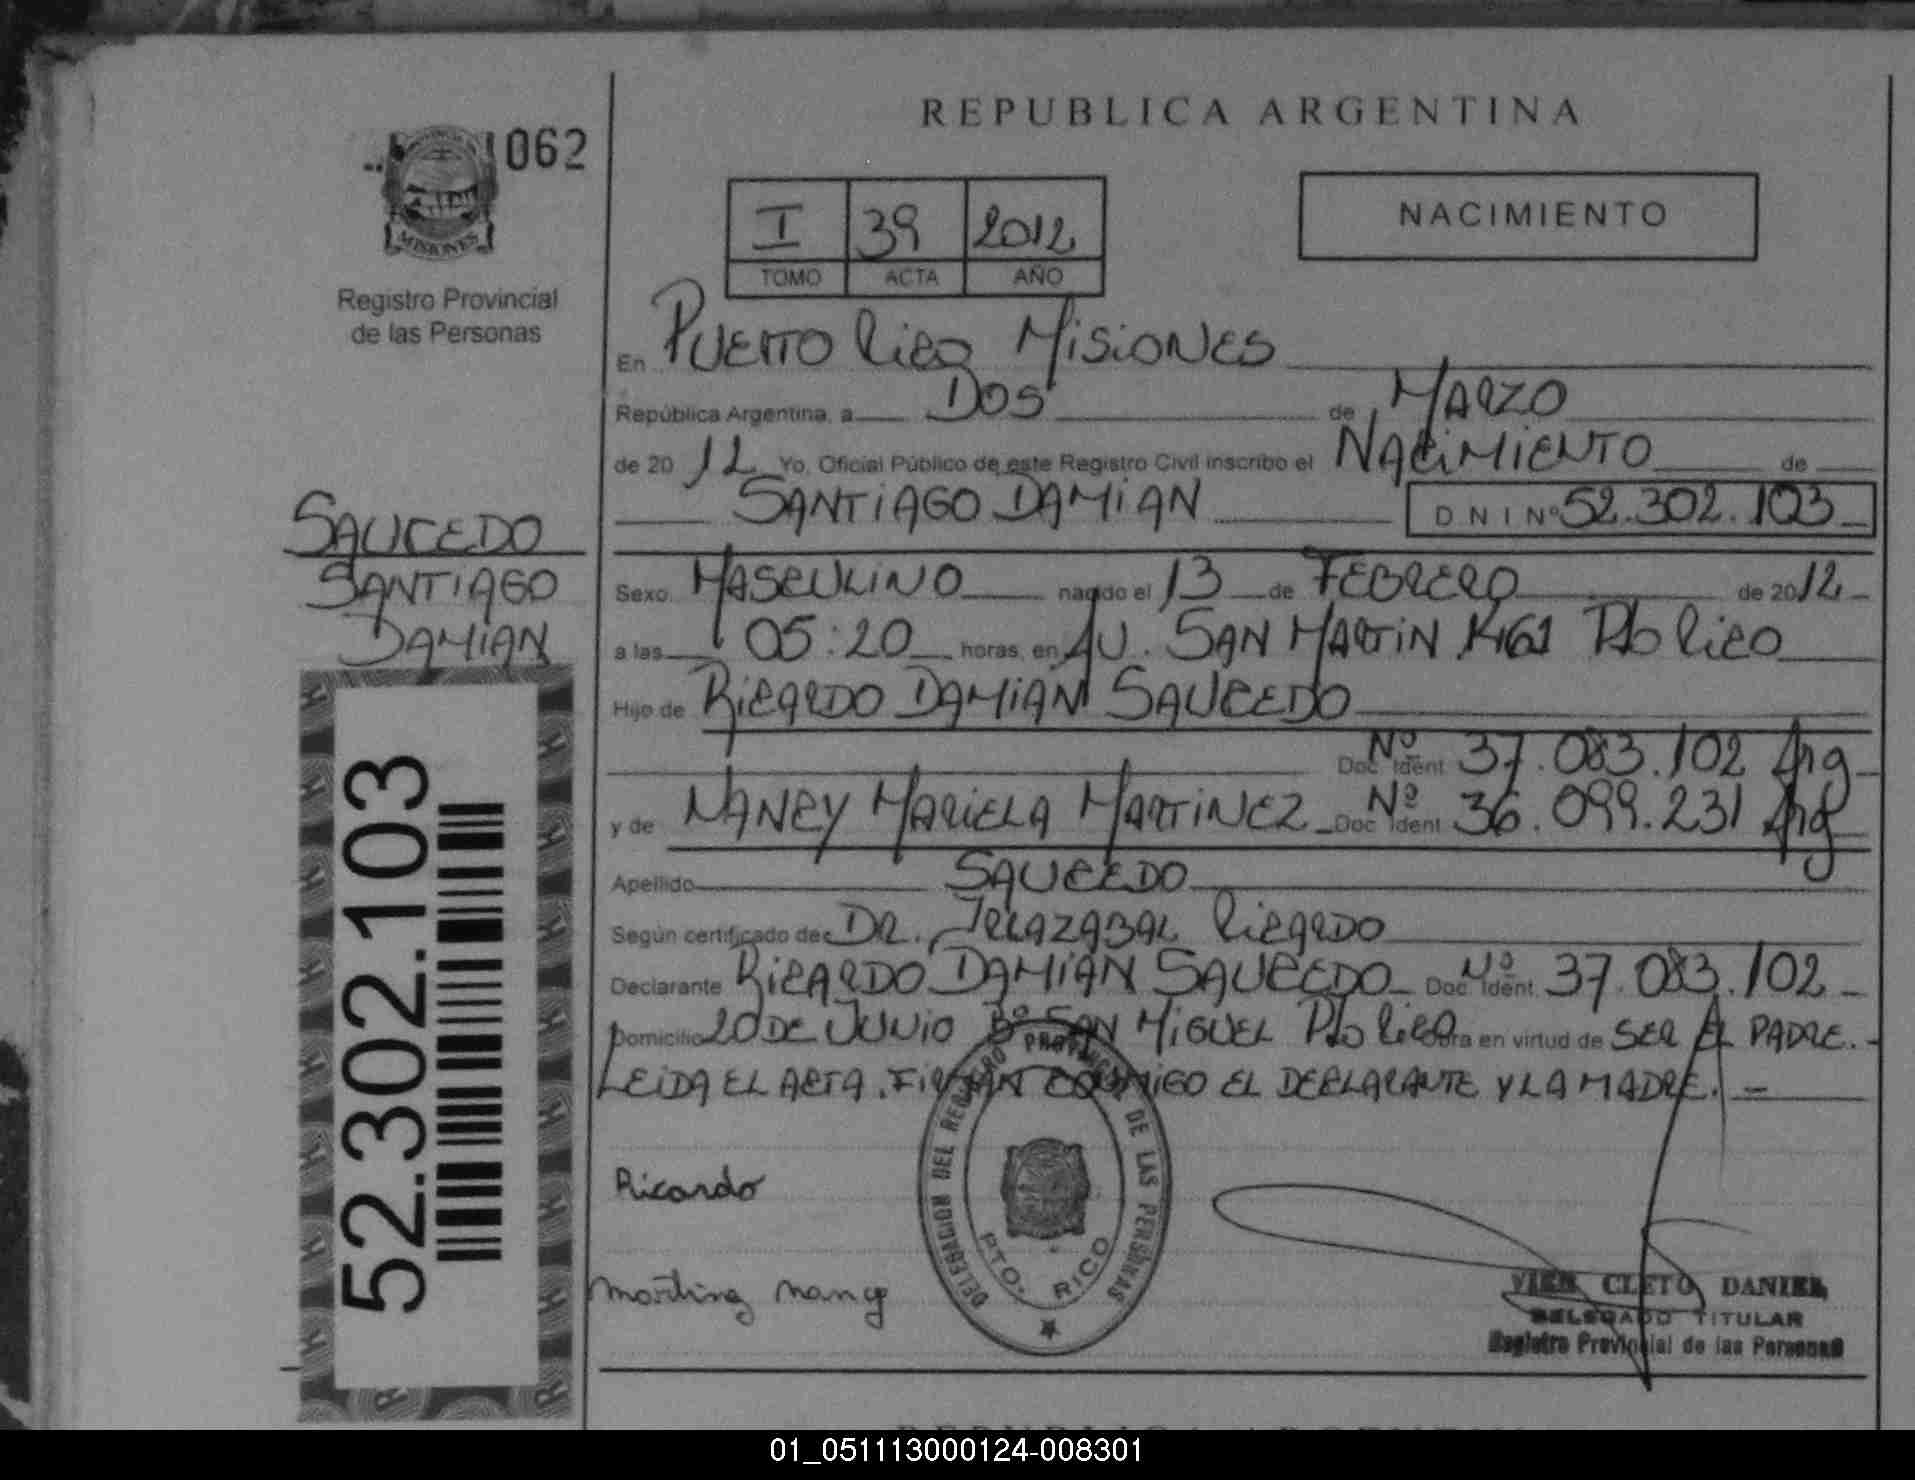 REPUBLICA ARGENTINA
062
MISIONES
Registro Provincial
de las Personas
I 39 2012
TOMO ACTA AÑO
NACIMIENTO
En PUERTO RICO MISIONES
República Argentina, a DOS de MARZO
de 2012 Yo, Oficial Público de este Registro Civil inscribo el NACIMIENTO de
SANTIAGO DAMIAN DNI Nº 52.302.103
SAUCEDO
SANTIAGO
DAMIAN
Sexo MASCULINO nacido el 13 de FEBRERO de 2012
a las 05:20 horas, en AV. SAN MARTIN 1761 Pto RICO
Hijo de RICARDO DAMIAN SAUCEDO
Doc. Ident Nº 37.083.102 Arg
y de NANCY MARIELA MARTINEZ Doc Ident Nº 36.099.231 Arg
Apellido SAUCEDO
Según certificado de: DR. IRLAZABAL RICARDO
Declarante RICARDO DAMIAN SAUCEDO Doc. Ident. Nº 37.083.102
Domicilio 20 DE JUNIO Bº SAN MIGUEL Pto RICO Obra en virtud de SER EL PADRE.
LEIDA EL ACTA. FIRMAN CONMIGO EL DECLARANTE Y LA MADRE.
52.302.103
Ricardo
DELEGACION DEL REGISTRO PROVINCIAL DE LAS PERSONAS
PTO. RICO
Martinez nancy
CLETO DANIEL
DELEGADO TITULAR
Registro Provincial de las Personas
01_051113000124-008301